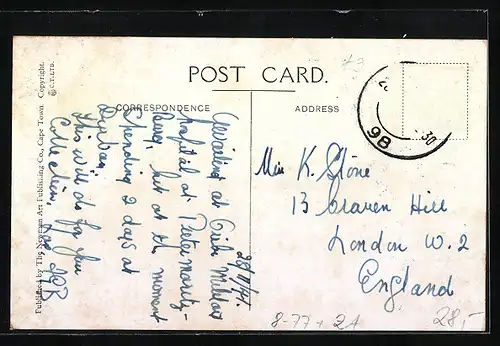 POST CARD.
CORRESPONDENCE
ADDRESS
Published by The Newman Art Publishing Co., Cape Town. Copyright.
C.T.LTD.
28/11/41.
at
hospital at Pietermaritz-
burg, but at the moment
Spending 2 days at
Durban.
This will do for your
Collection.
Miss K. Stone
13 Craven Hill
London W. 2
England
98
30
8-77+21
28,-